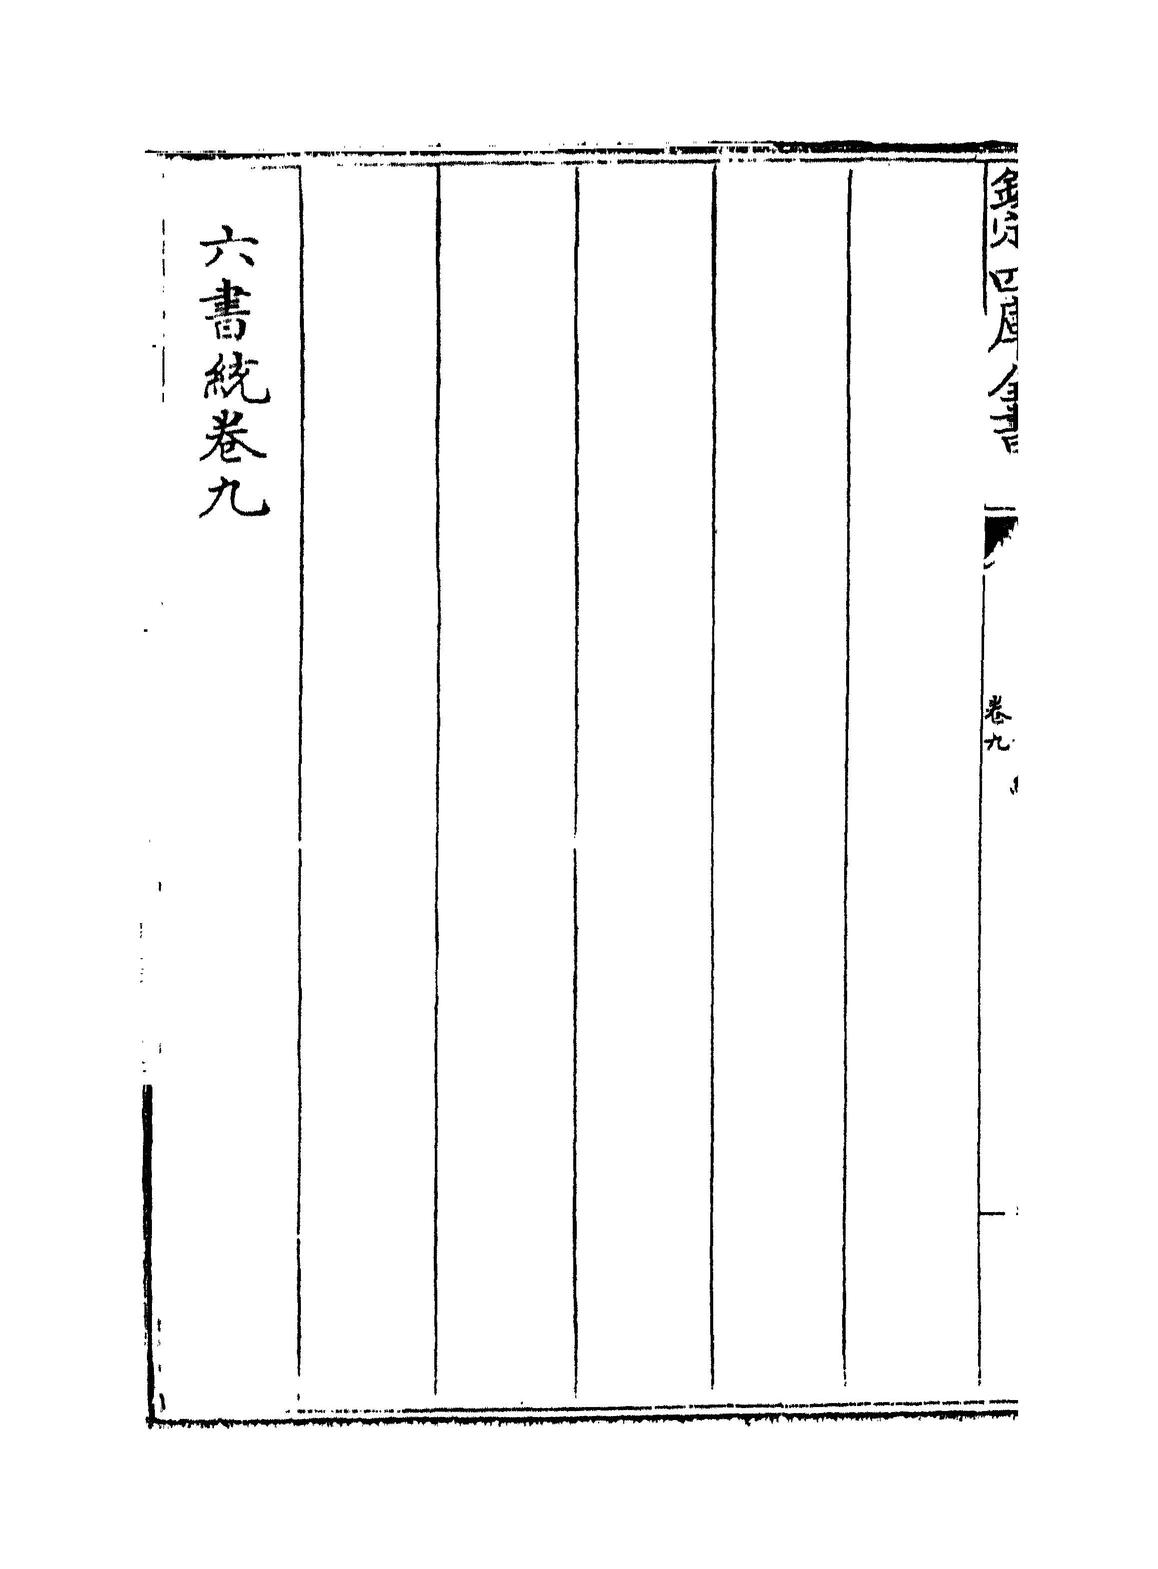 欽定四庫全書
卷九
六書統卷九